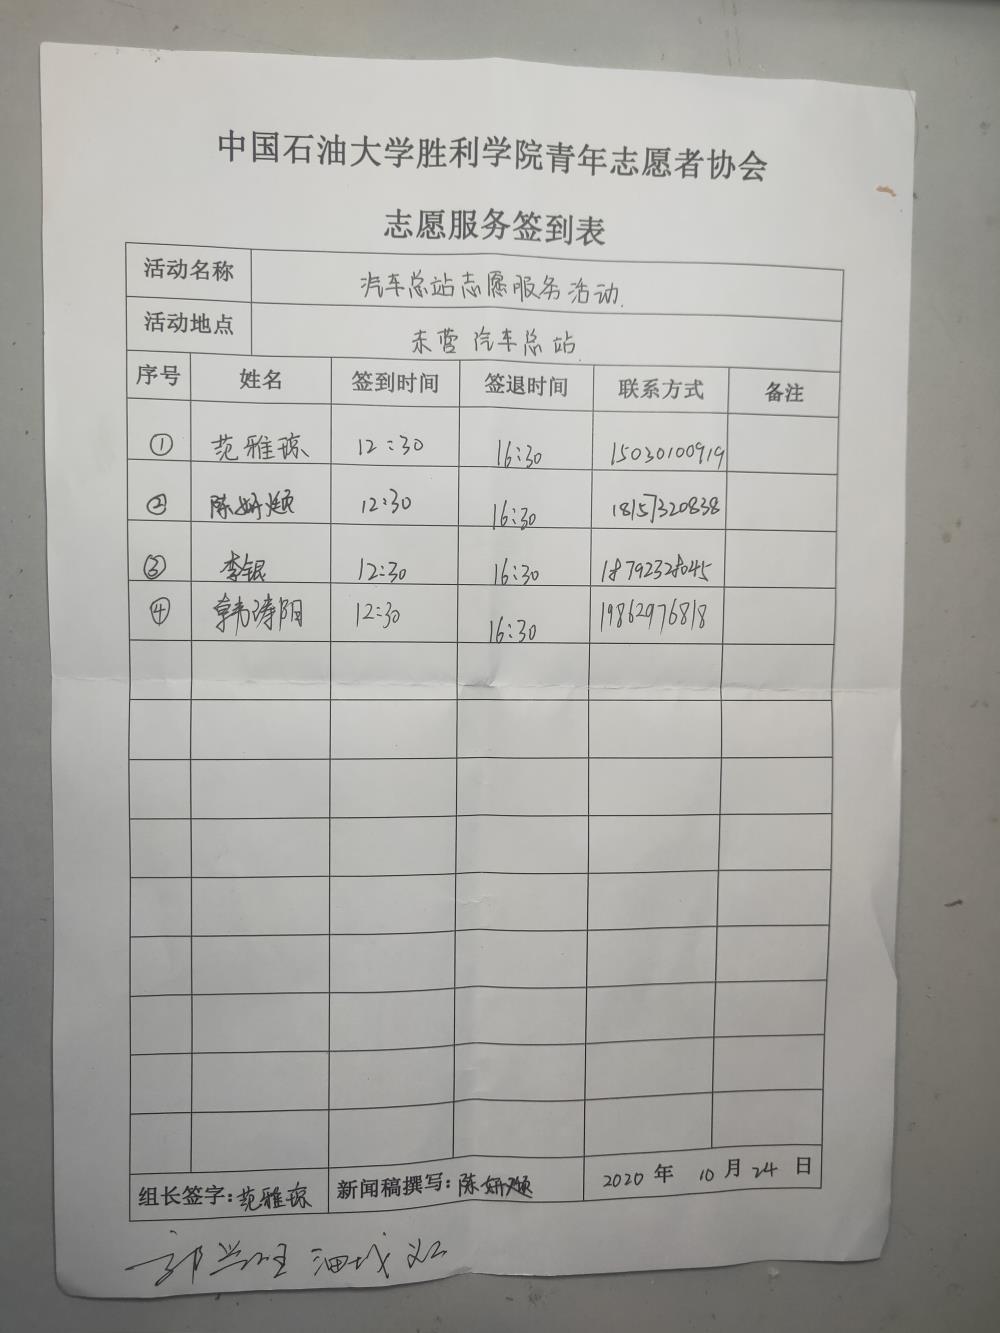 中国石油大学胜利学院青年志愿者协会
志愿服务签到表
活动名称 汽车总站志愿服务活动.
活动地点 东营汽车总站.
序号 姓名 签到时间 签退时间 联系方式 备注
① 范雅琼 12:30 16:30 15030100919
② 陈妍 12:30 16:30 18157320838
③ 李银 12:30 16:30 18792328045
④ 韩涛阳 12:30 16:30 19862976818
组长签字:范雅琼 新闻稿撰写:陈妍 2020年 10月24日